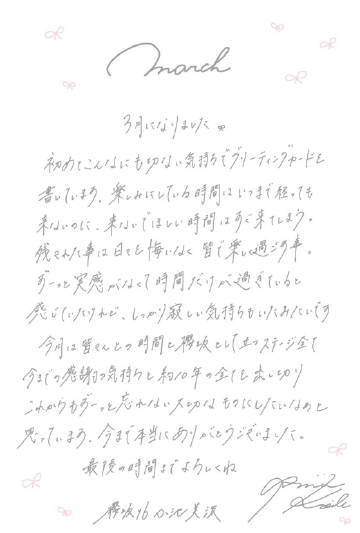 march
3月になりました
初めてこんなにも切ない気持ちでグリーティングカードを
書いています、楽しみにしている時間はいつまで経っても
来ないのに、来ないでほしい時間はすぐ来てしまう。
残された事は日々を悔いなく皆で楽しく過ごす事。
ずーっと実感がなくて時間だけが過ぎていると
感じていたけれど、しっかり寂しい気持ちもいたみたいです
今月は皆さんとの時間と櫻坂として立つステージ全て
今までの感謝の気持ちと約10年の全てを出し切り
これからもずーっと忘れない大切なものにしたいなあと
思っています、今まで本当にありがとうございました。
最後の時間までよろしくね
櫻坂46 小池美波